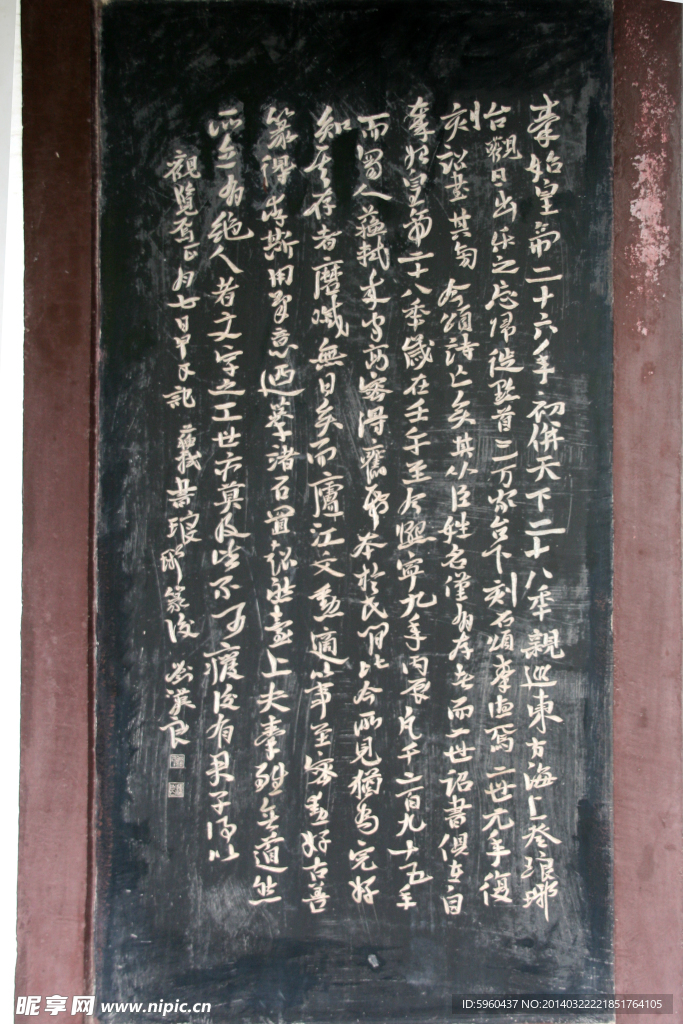 秦始皇帝二十六年初併天下二十八年親巡東方海上登琅邪
台觀日出乐之忘帰徙黔首三万家台下刻石頌秦德焉二世元年復
刻詔其旁今頌詩亡矣其从臣姓名僅有存者而二世詔書俱在自
秦始皇帝二十八年歲在壬午至今熙寧九年丙辰凡千二百九十五年
而蜀人蘇軾来守高密得舊紙本於民间比今所見猶為完好
知其存者磨滅無日矣而廬江文勛適以事至密勛好古善
篆得李斯用筆意廼摹諸石置超然臺上夫秦雖無道然
所立有絕人者文字之工世亦莫及皆不可廢後有君子得以
觀覽焉正月七日甲子記 蘇軾書琅邪篆後
昵享网 www.nipic.cn
ID:5960437 NO:20140322221851764105